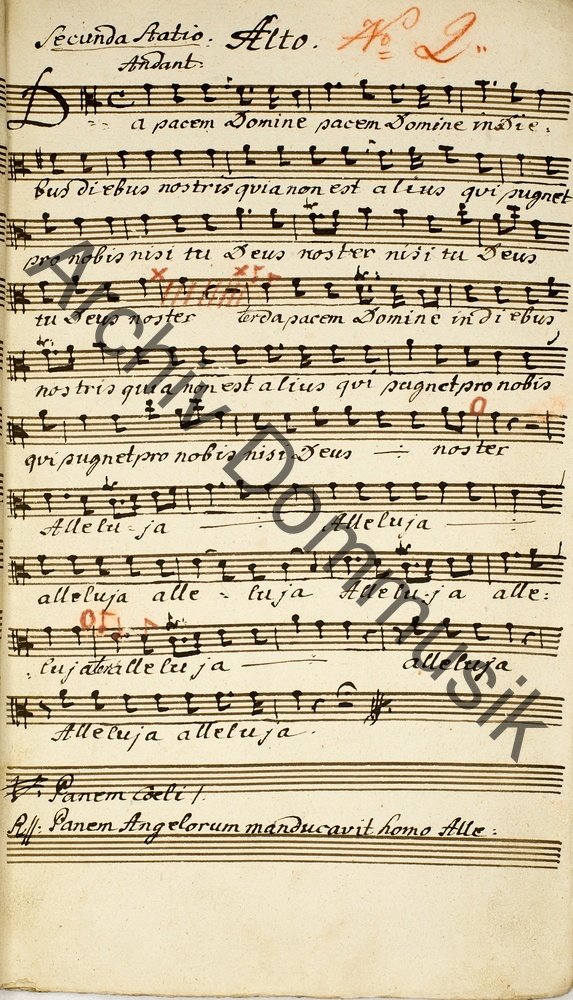 Secunda Statio. Alto. No 2.
Andant.
Da pacem Domine pacem Domine in Die:
bus diebus nostris quia non est alius qvi pugnet
pro nobis nisi tu Deus noster nisi tu Deus
tu Deus noster ter da pacem Domine in diebus
nostris quia non est alius qvi pugnet pro nobis
qvi pugnet pro nobis nisi Deus noster
Alleluja Alleluja
alleluja alle-luja Alleluja alle:
luja alleluja alleluja
Alleluja alleluja.
V: Panem Coeli /.
R: Panem Angelorum manducavit homo Alle:
Archiv Dommusik